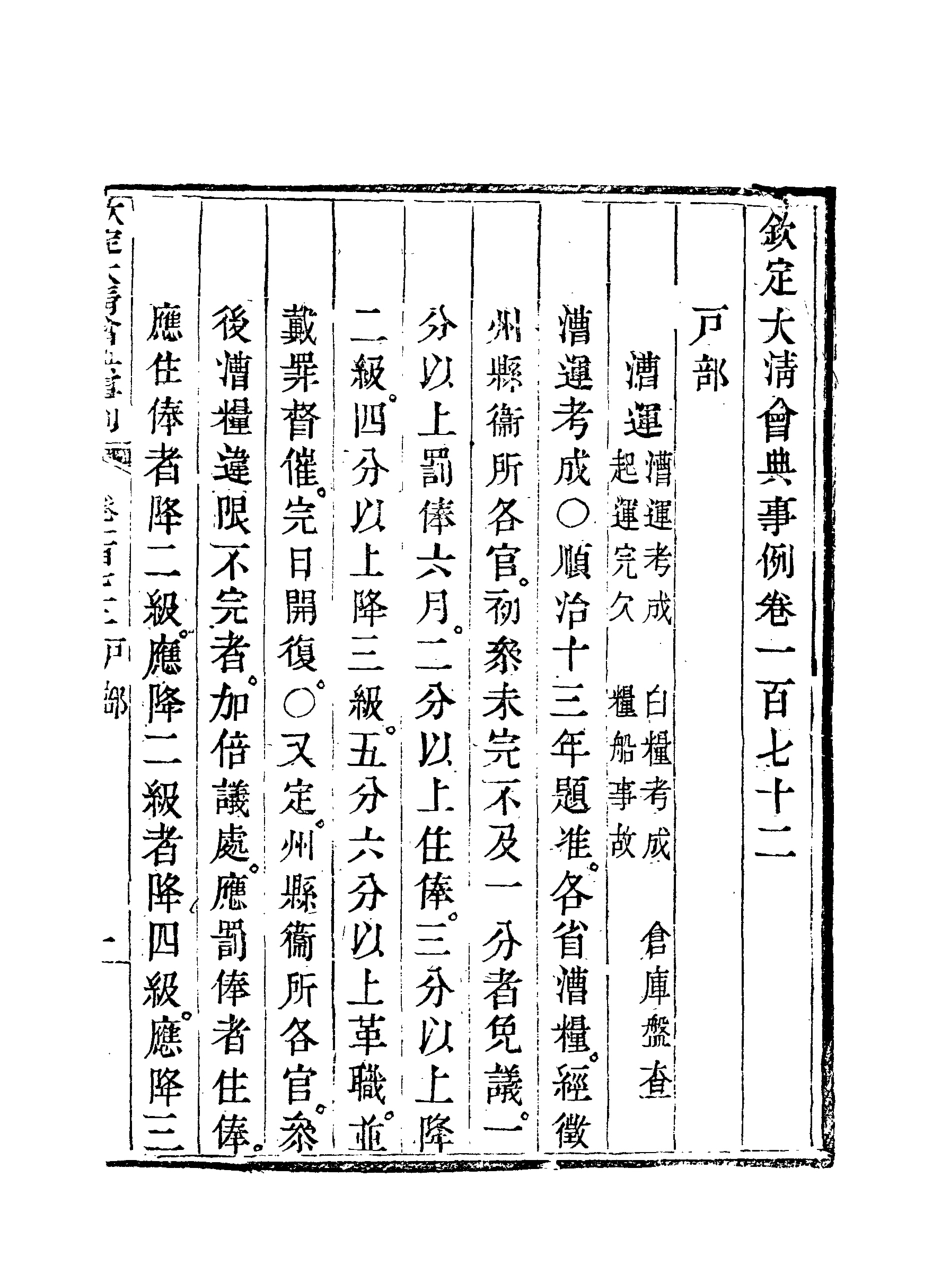 欽定大清會典事例卷一百七十二
戸部
漕運 漕運考成 白糧考成 倉庫盤查
起運完欠 糧船事故
漕運考成○順治十三年題准。各省漕糧。經徵
州縣衞所各官。初叅未完不及一分者免議。一
分以上罰俸六月。二分以上住俸。三分以上降
二級。四分以上降三級。五分六分以上革職。並
戴罪督催。完日開復。○又定。州縣衞所各官。叅
後漕糧違限不完者。加倍議處。應罰俸者住俸。
應住俸者降二級。應降二級者降四級。應降三
戸部
一